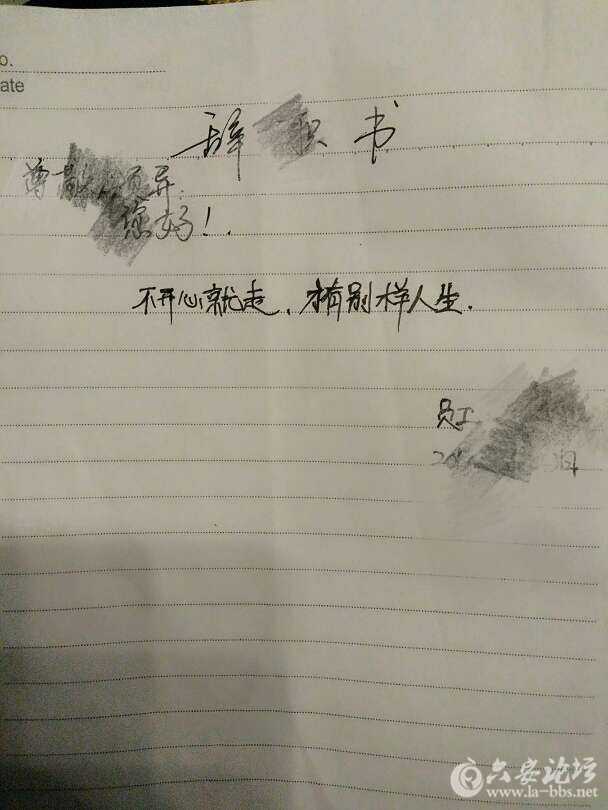 o.
ate
辞职书
尊敬的领导:
您好!
不开心就走、才有别样人生.
员工
日
六安论坛
www.la-bbs.net